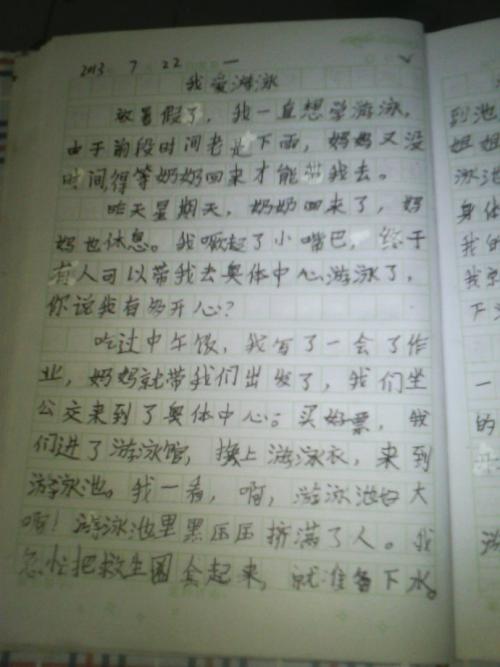 2013 7 22 一
我爱游泳
放暑假了，我一直想学游泳，
由于前段时间老是下雨，妈妈又没
时间得等奶奶回来才能带我去。
昨天星期天，奶奶回来了，妈
妈也休息。我噘起了小嘴巴，终于
有人可以带我去奥体中心游泳了，
你说我有多开心？
吃过中午饭，我写了一会了作
业，妈妈就带我们出发了，我们坐
公交来到了奥体中心。买好票，我
们进了游泳馆，换上游泳衣，来到
游泳池。我一看，啊，游泳池好大
啊！游泳池里黑压压挤满了人。我
急忙把救生圈套起来，就准备下水。
到池
姐姐
泳池
身体
我的
我
下
一
的